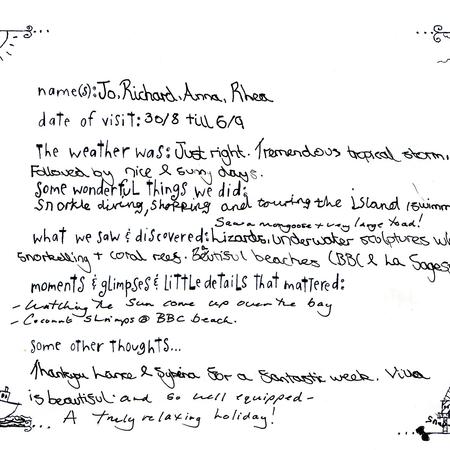 name(s): Jo, Richard, Anna, Rhea
date of visit: 30/8 till 6/9
The weather was: Just right. Tremendous tropical storm,
Followed by nice & sunny days.
Some wonderful things we did:
Snorkle diving, shopping and touring the island
Saw a mongoose + very large toad!
what we saw & discovered: Lizards, underwater sculptures
snorkelling + coral reef. Beautiful beaches (BBC & La Sagesse
moments & glimpses & little details that mattered:
- Watching the sun come up over the bay
- Coconut Shrimps @ BBC beach.
some other thoughts...
Thankyou Lance & for a fantastic week. Villa
is beautiful and so well equipped -
A truly relaxing holiday!